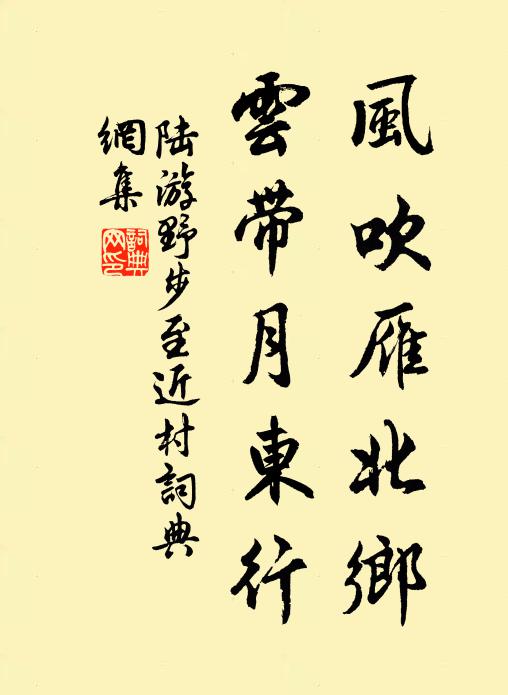 風吹雁北鄉
雲帶月東行
陸游野步至近村詞典
網集
詞典網印